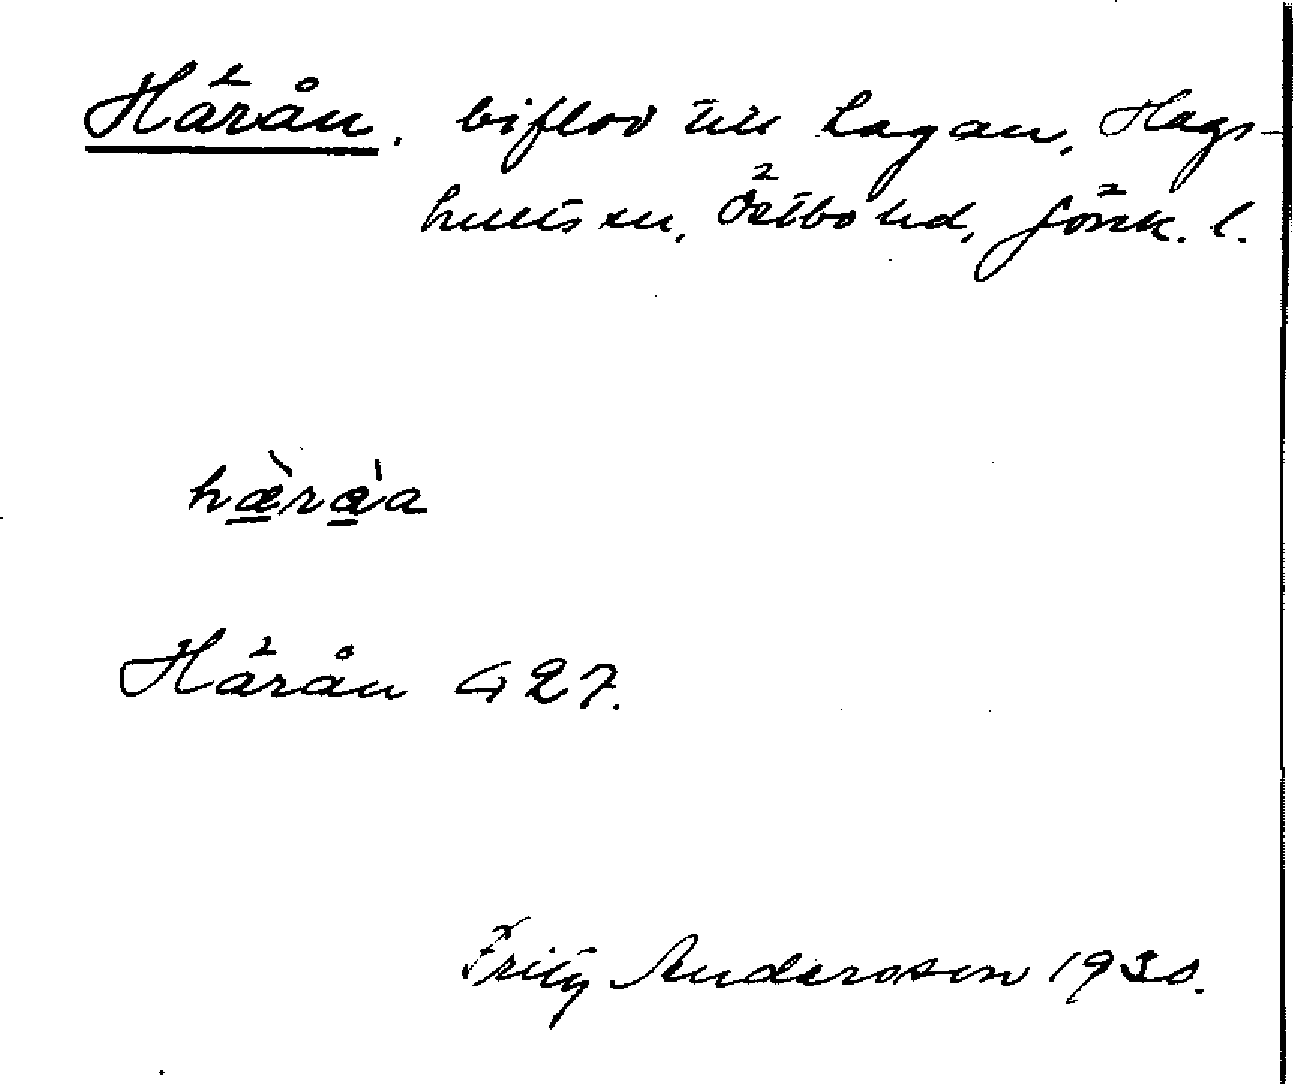 Härån. biflod till Lagan, Hags-
hults sn, Östbo hd, Jönk. l.
hæ̀ræ̀a
Härån 427.
Fritz Andersson 1930.